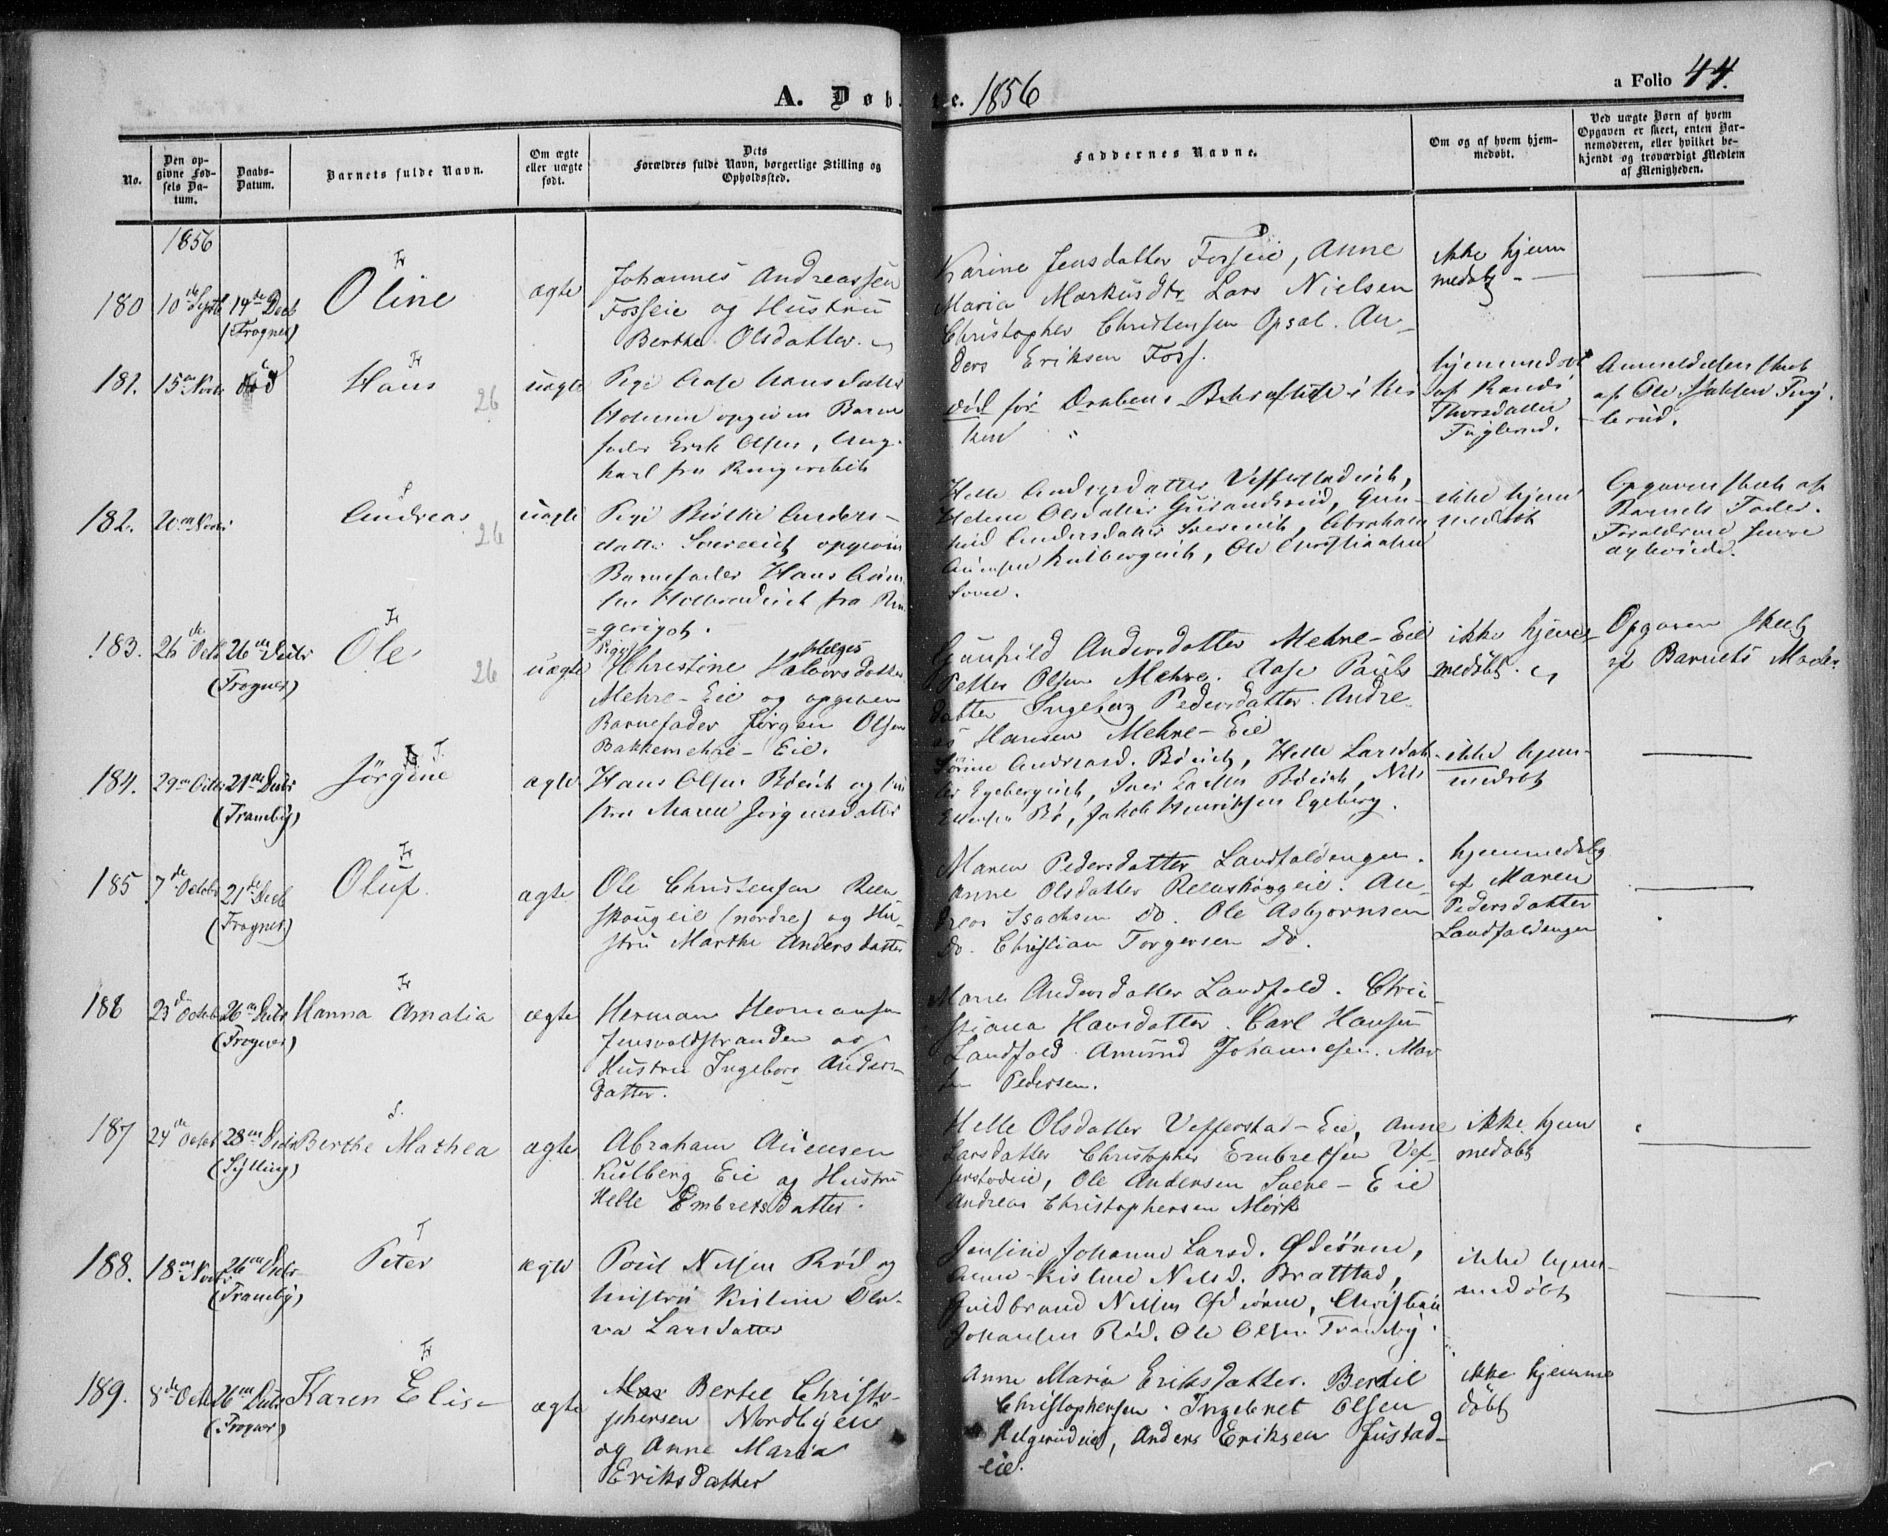 A. Døb.
te. 1856
a Folio 44.
No.
Den opgivne Fødsels Datum.
Daabs-Datum.
Barnets fulde Navn.
Om ægte eller uægte født.
Dets Forældres fulde Navn, borgerlige Stilling og Opholdssted.
Faddernes Navne.
Om og af hvem hjemmedøbt.
Ved uægte Børn af hvem Opgaven er skeet, enten Barnemoderen, eller hvilket bekjendt og troværdigt Medlem af Menigheden.
1856
180 10de Septb 14de Decb (Frogner)
Fr
Oline
ægte
Johannes Andreassen
Fosseie og Hustru
Berthe Olsdatter.
Karine Jensdatter Fosseie, Anne
Maria Markusdtr Lars Nielsen
Christopher Christensen Opsal. An-
ders Eriksen Foss.
ikke hjem
medøbt
181. 15de Novbr død
Fr
Hans
26
uægte
Pige Aase Hansdatter
opgiven Barne
fader Erik Olsen, Ung-
karl fra Ringerike
død før Daabens Bekræftelse i Kir
ken
hjemmedøbt
af Randi
Thorsdatter
Fuglerud.
Anmeldelsen skeet
af Ole Isaksen Fug-
lerud.
182. 20de Novbr
S
Andreas
26
uægte
Pige Berthe Anders-
datter Svereeie opgiven
Barnefader Hans
fra Rin
=gerigot.
Helle Andersdatter Vefferstadeie,
Helene Olsdatter Gun-
hild Andersdatter Svereeie, Abraham
Auensen Kulbergeie, Ole Christiansen
ikke hjem
medøbt
Opgaven skeet af
Barnets Fader.
Forældrene
183. 26de Octb 26de Decbr (Frogner)
Fr
Ole
26
uægte
Pige
Christine Helges Halvorsdatter
Mehre-Eie og opgiven
Barnefader Jørgen Olsen
Bakkemehre-Eie.
Gunhild Andersdatter Mehre-Eie
Petter Olsen Mehre. Aase Pauls
datter Ingeborg Pedersdatter. Andre
as Hansen Mehre-Eie
ikke hjem
medøbt.
Opgaven skeet
af Barnets Moder
184. 29de Octbr 21de Decbr (Tranby)
T.
Jørgine
ægte
Hans Olsen Bøeie og Hu
stru Maren Jørgensdatter
Sørine Andreasd. Bøeie, Helle Larsdat
ter Egebergeie, Iver Larsen Bøeie, Nils
Ellensen Bø, Jakob Henriksen Egeberg.
ikke hjem-
medøbt
185 7de Octobr 21de Decb (Frogner)
Fr
Oluf
ægte
Ole Christensen Reen
skougeie (nordre) og Hu-
stru Marthe Andersdatter
Maren Pedersdatter Landfaldengen.
Anne Olsdatter Reenskoggeie. An-
dreas Isachsen do. Ole Asbjørnsen
do. Christian Torgersen do.
hjemmedøbt
af Maren
Pedersdatter
Landfaldengen
186 23de Octob 26de Decbr (Frogner)
Fr
Hanna Amalia
ægte
Herman Hermansen
Jensvoldstranden og
Hustru Ingeborg Anders-
datter.
Maren Andersdatter Landfald. Chri-
stiana Hansdatter. Carl Hansen
Landfald. Amund Johannesen. Mar
Pedersen.
187 24de Octob 28de Decbr (Sylling)
S.
Berthe Mathea
ægte
Abraham Auensen
Kulberg Eie og Hustru
Helle Embretsdatter.
Helle Olsdatter Vefferstad-Eie, Anne
Larsdatter Christopher Embretsen Vef-
ferstadeie, Ole Andersen Svere-Eie
Andreas Christophersen Mørk
ikke hjem
medøbt
188. 18de Novb 26de Decbr (Tranby)
T
Peter
ægte
Poul Nilsen Rød og
Hustru Kristine Ole-
va Larsdatter
Jensine Johanne Larsd.
Anne Kistine Nilsd. Brattlad,
Guldbrand Nilsen Christian
Johansen Rød. Ole Olsen Tranby.
ikke hjem-
medøbt
189. 8de Octb 26de Decbr (Frogner)
Fr
Karen Elise
ægte
Bertel Christo-
phersen Nordbyen
og Anne Maria
Eriksdatter
Anne Maria Eriksdatter. Bertil
Christophersen. Ingebret Olsen
Helgerudeie, Anders Eriksen Justad-
eie.
ikke hjemme
døbt